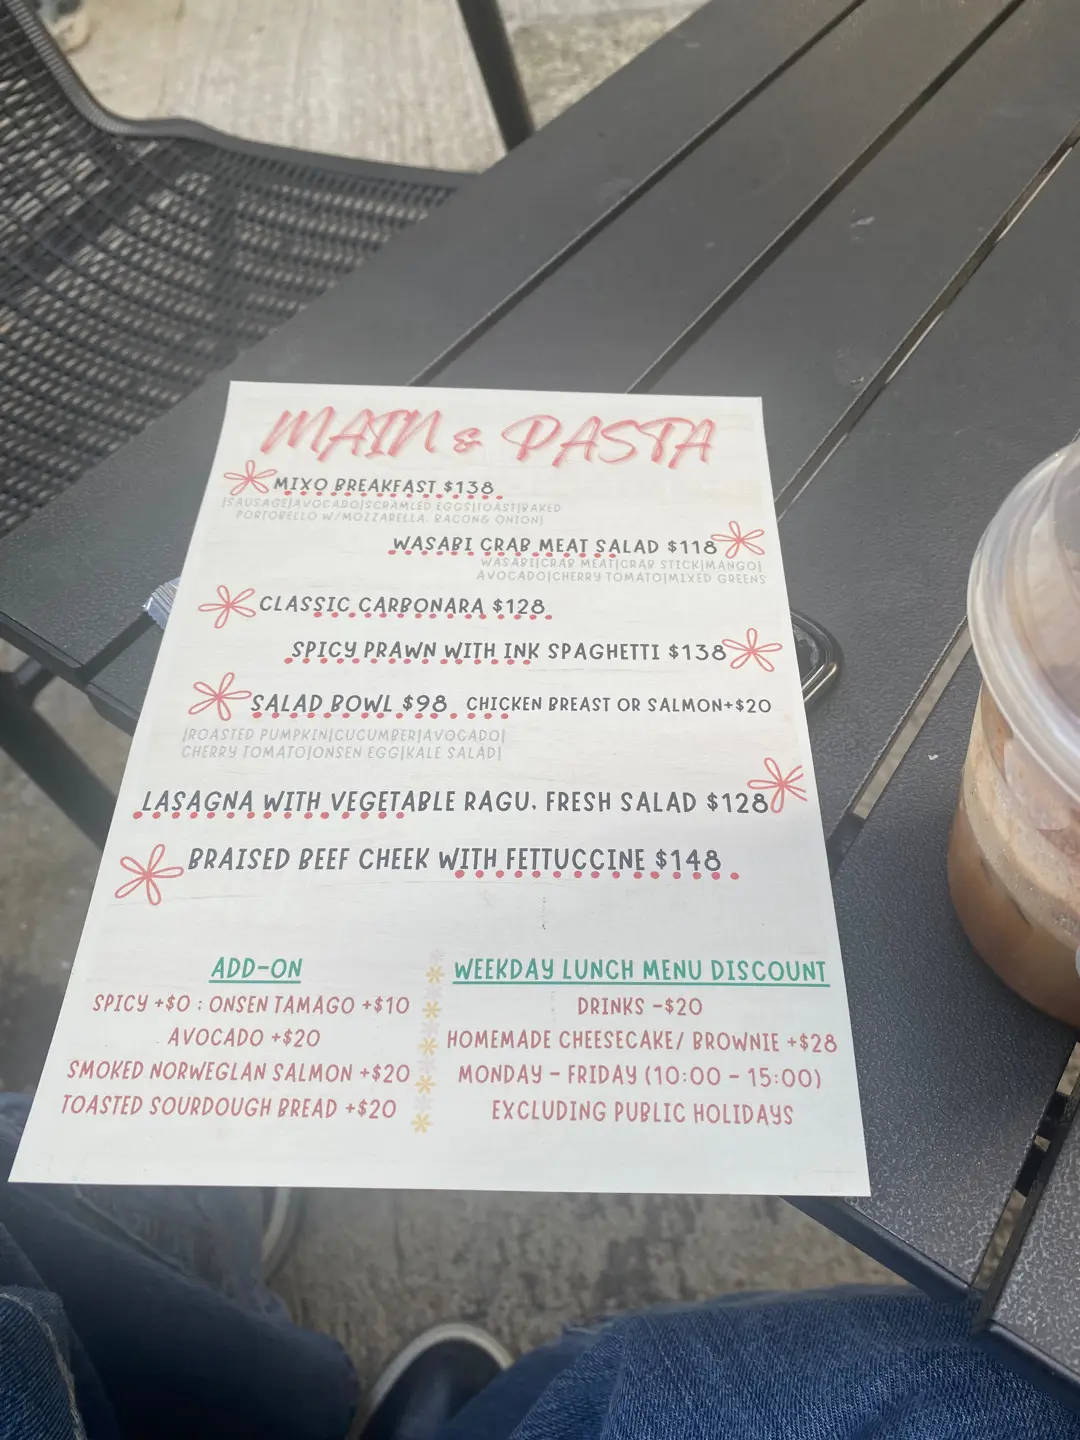 MAIN & PASTA
MIXO BREAKFAST $138
|SAUSAGE|AVOCADO|SCRAMLED EGGS|TOAST|BAKED
PORTOBELLO W/MOZZARELLA, BACON& ONION|
WASABI CRAB MEAT SALAD $118
WASABI|CRAB MEAT|CRAB STICK|MANGO|
AVOCADO|CHERRY TOMATO|MIXED GREENS
CLASSIC CARBONARA $128
SPICY PRAWN WITH INK SPAGHETTI $138
SALAD BOWL $98 CHICKEN BREAST OR SALMON+$20
|ROASTED PUMPKIN|CUCUMBER|AVOCADO|
CHERRY TOMATO|ONSEN EGG|KALE SALAD|
LASAGNA WITH VEGETABLE RAGU, FRESH SALAD $128
BRAISED BEEF CHEEK WITH FETTUCCINE $148
ADD-ON
SPICY +$0 : ONSEN TAMAGO +$10
AVOCADO +$20
SMOKED NORWEGLAN SALMON +$20
TOASTED SOURDOUGH BREAD +$20
WEEKDAY LUNCH MENU DISCOUNT
DRINKS -$20
HOMEMADE CHEESECAKE/ BROWNIE +$28
MONDAY - FRIDAY (10:00 - 15:00)
EXCLUDING PUBLIC HOLIDAYS